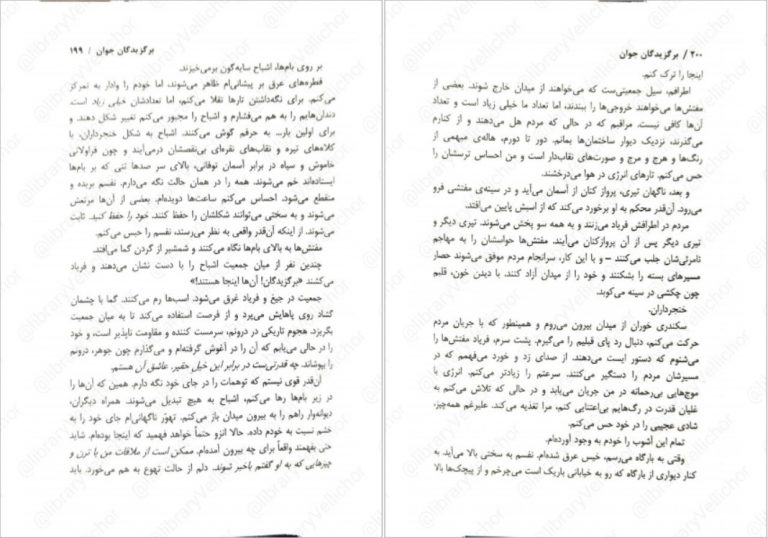 برگزیدگان جوان / ۱۹۹
بر روی بام‌ها، اشباح سایه‌گون برمی‌خیزند.
قطره‌های عرق بر پیشانی‌ام ظاهر می‌شوند، اما خودم را وادار به تمرکز
می‌کنم. برای نگه‌داشتن تارها تقلا می‌کنم، اما تعدادشان خیلی زیاد است.
دندان‌هایم را به هم می‌فشارم و اشباح را مجبور می‌کنم تغییر شکل دهند. و
برای اولین بار... به حرفم گوش می‌کنند. اشباح به شکل خنجرداران، با
کلاه‌های تیره و نقاب‌های نقره‌ای بی‌نقصشان درمی‌آیند و چون قراولانی
خاموش و سیاه در برابر آسمان توفانی، بالای سر صدها تنی که بر بام‌ها
ایستاده‌اند خم می‌شوند. همه را در همان حالت نگه می‌دارم. نفسم بریده و
منقطع می‌شود. احساس می‌کنم ساعت‌ها دویده‌ام. بعضی از آن‌ها مرتعش
می‌شوند و به سختی می‌توانند شکلشان را حفظ کنند. خود را حفظ کنید. ثابت
می‌شوند. از اینکه آن‌قدر واقعی به نظر می‌رسند، نفسم را حبس می‌کنم.
مفتش‌ها به بالای بام‌ها نگاه می‌کنند و شمشیر از گردن گما می‌افتد.
چندین نفر از میان جمعیت اشباح را با دست نشان می‌دهند و فریاد
می‌کشند «برگزیدگان! آن‌ها اینجا هستند!»
جمعیت در جیغ و فریاد غرق می‌شود. اسب‌ها رم می‌کنند. گما با چشمان
گشاد روی پاهایش می‌پرد و از فرصت استفاده می‌کند تا به میان جمعیت
بگریزد. هجوم تاریکی در درونم، سرمست کننده و مقاومت ناپذیر است، و خود
را در حالی می‌یابم که آن را در آغوش گرفته‌ام و می‌گذارم چون جوهر، درونم
را بپوشاند. چه قدرتی‌ست در برابر این خیل حقیر. عاشق آن هستم.
آن‌قدر قوی نیستم که توهمات را در جای خود نگه دارم. همین که آن‌ها را
در زیر بام‌ها رها می‌کنم، اشباح به هیچ تبدیل می‌شوند. همراه دیگران،
دیوانه‌وار راهم را به بیرون میدان باز می‌کنم. تهوّر ناگهانی‌ام جای خود را به
خشم نسبت به خودم داده. حالا انزو حتماً خواهد فهمید که اینجا بوده‌ام. شاید
حتی بفهمند واقعاً برای چه بیرون آمده‌ام. ممکن است از ملاقات من با ترن و
چیزهایی که به او گفتم باخبر شوند. دلم از حالت تهوع به هم می‌خورد. باید
۲۰۰ / برگزیدگان جوان
اینجا را ترک کنم.
اطرافم، سیل جمعیتی‌ست که می‌خواهند از میدان خارج شوند. بعضی از
مفتش‌ها می‌خواهند خروجی‌ها را ببندند، اما تعداد ما خیلی زیاد است و تعداد
آن‌ها کافی نیست. مراقبم که در حالی که مردم هل می‌دهند و از کنارم
می‌گذرند، نزدیک دیوار ساختمان‌ها بمانم. دور تا دورم، هاله‌ی مبهمی از
رنگ‌ها و هرج و مرج و صورت‌های نقاب‌دار است و من احساس ترسشان را
حس می‌کنم. تارهای انرژی در هوا می‌درخشند.
و بعد، ناگهان تیری، پرواز کنان از آسمان می‌آید و در سینه‌ی مفتشی فرو
می‌رود. آن‌قدر محکم به او برخورد می‌کند که از اسبش پایین می‌افتد.
مردم در اطرافش فریاد می‌زنند و به همه سو پخش می‌شوند. تیری دیگر و
تیری دیگر پس از آن پروازکنان می‌آیند. مفتش‌ها حواسشان را به مهاجم
نامرئی‌شان جلب می‌کنند – و با این کار، سرانجام مردم موفق می‌شوند حصار
مسیرهای بسته را بشکنند و خود را از میدان آزاد کنند. با دیدن خون، قلبم
چون چکشی در سینه می‌کوبد.
خنجرداران.
سکندری خوران از میدان بیرون می‌روم و همینطور که با جریان مردم
حرکت می‌کنم، دنبال رد پای قبلیم را می‌گیرم. پشت سرم، فریاد مفتش‌ها را
می‌شنوم که دستور ایست می‌دهند. از صدای زد و خورد می‌فهمم که در
مسیرشان مردم را دستگیر می‌کنند. سرعتم را زیادتر می‌کنم. انرژی با
موج‌هایی بی‌رحمانه در من جریان می‌یابد و در حالی که تلاش می‌کنم به
غلیان قدرت در رگ‌هایم بی‌اعتنایی کنم، مرا تغذیه می‌کند. علیرغم همه‌چیز،
شادی عجیبی را در خود حس می‌کنم.
تمام این آشوب را خودم به وجود آورده‌ام.
وقتی به بارگاه می‌رسم، خیس عرق شده‌ام. نفسم به سختی بالا می‌آید. به
کنار دیواری از بارگاه که رو به خیابانی باریک است می‌چرخم و از پیچک‌ها بالا
@libraryVellichor